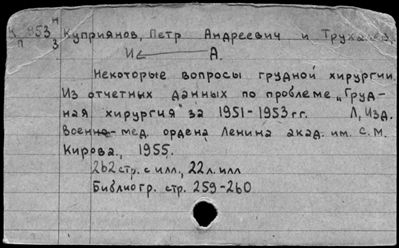 К 953 н Куприянов, Петр Андреевич и
п з
И А.
Некоторые вопросы грудной хирургии.
Из отчетных данных по проблеме „Груд-
ная хирургия" за 1951-1953 гг. Л, Изд.
Военно-мед. ордена Ленина акад. им. С.М.
Кирова, 1955.
262 стр. с илл., 22 л. илл
Библиогр. стр. 259-260